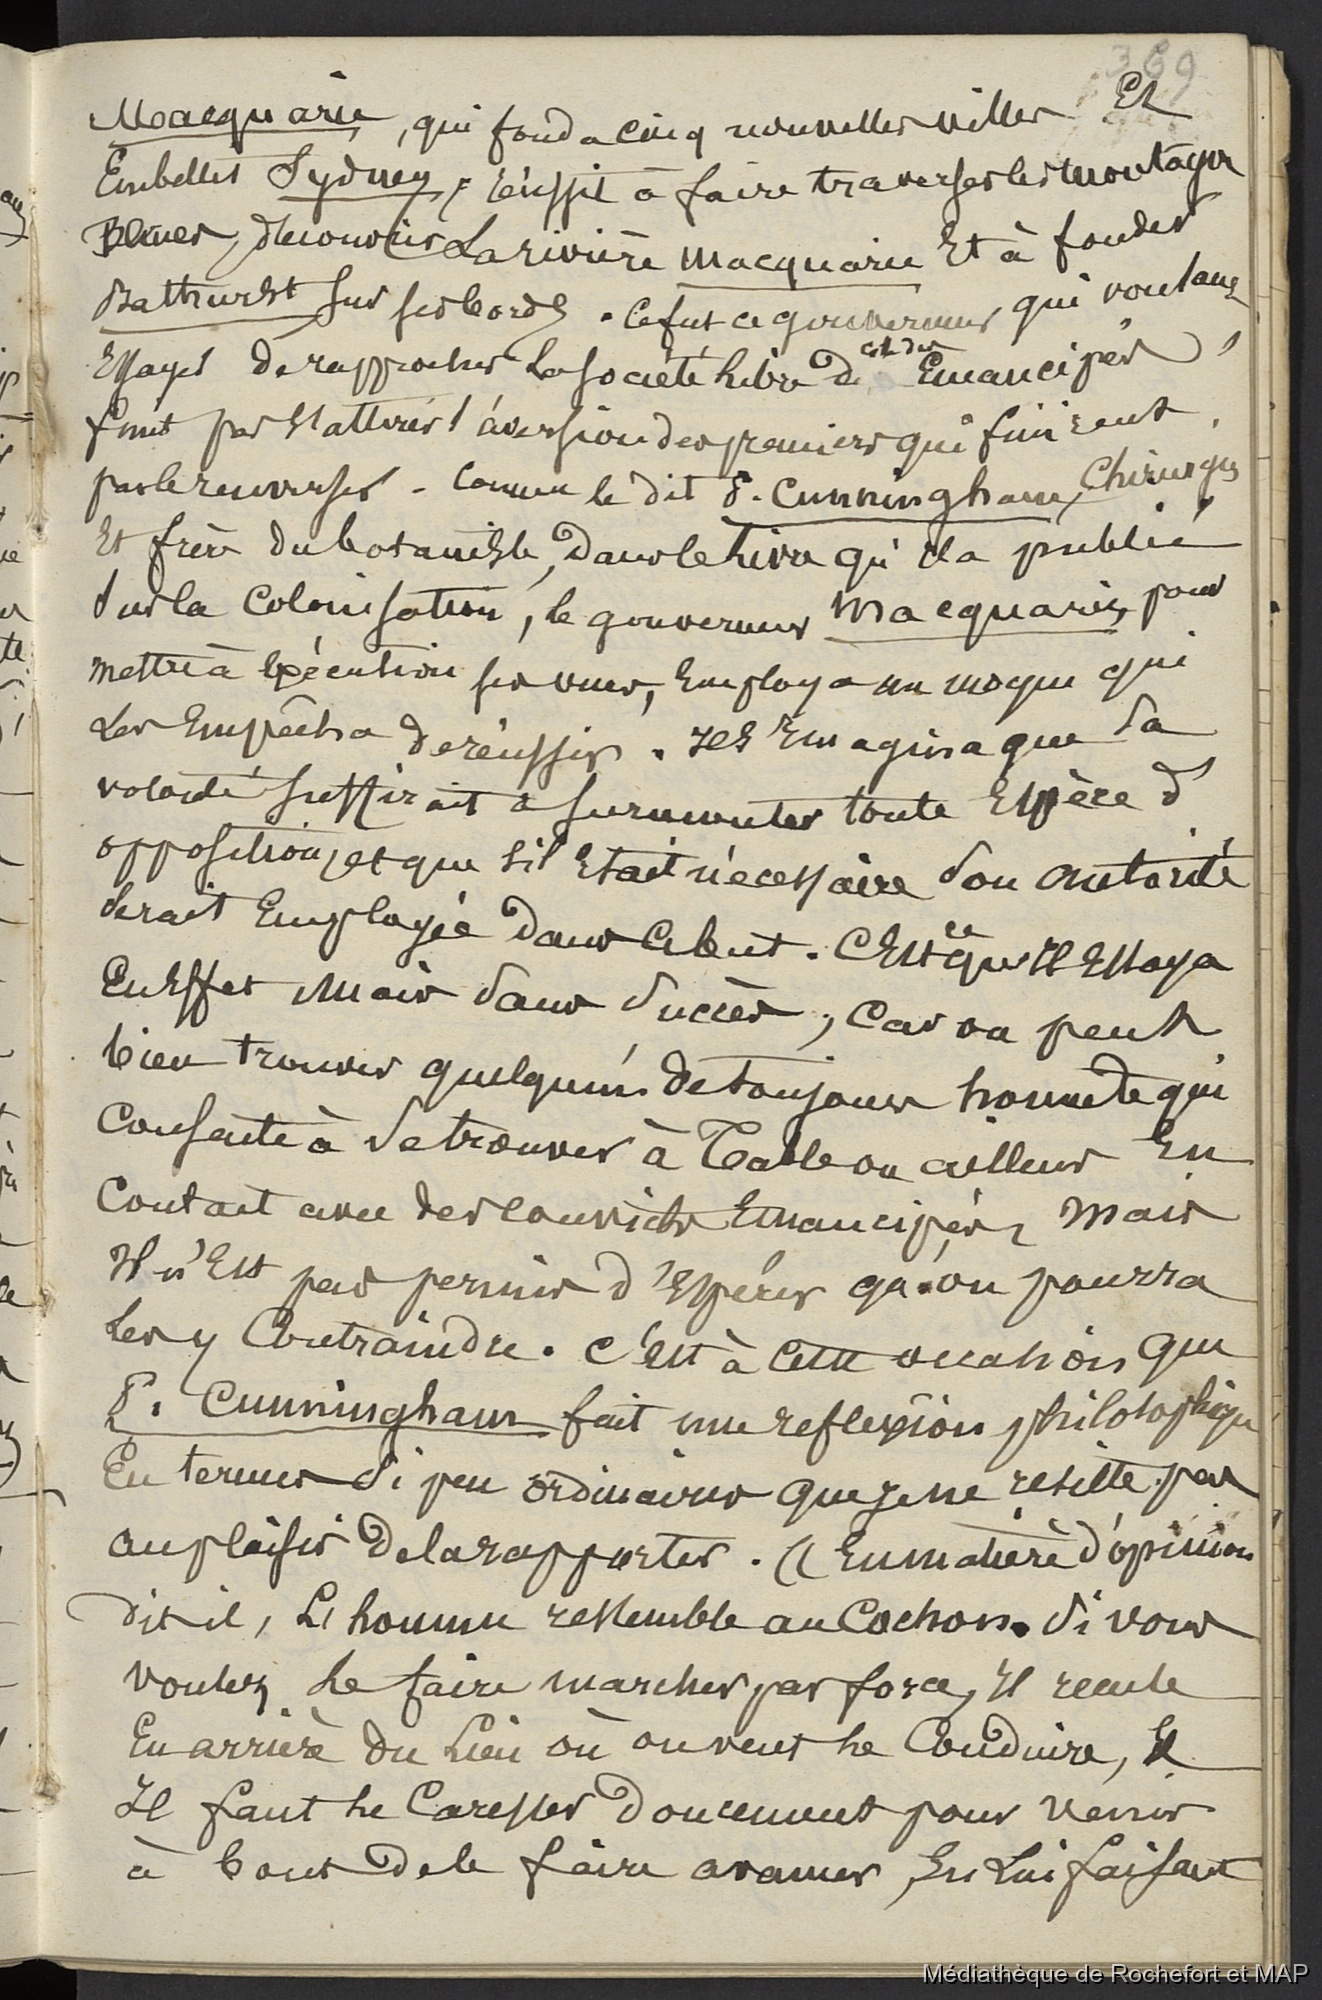 369
Macquarie, qui fonda cinq nouvelles villes Et
Embellit Sydney, réussit à faire traverser les montagnes
Bleues, découvrir La rivière Macquarie Et à fonder
Bathurst sur ses bords. Ce fut ce gouverneur qui voulant
Essayer de rapprocher La société libre de celle des Emancipés,
finit par s'attirer l'aversion des premiers qui finirent
par le renverser. Comme le dit P. Cunningham, Chirurgien
Et frère du botaniste, dans le livre qu'il a publié
sur la Colonisation, le gouverneur Macquarie, pour
mettre à Exécution ses vues, Employa un moyen qui
Les Empêcha de réussir. Il s'imagina que sa
volonté suffirait à surmonter toute Espèce d'
opposition, et que s'il Etait nécessaire son autorité
serait Employée dans ce but. C'Est ce qu'il Essaya
En Effet Mais sans succès, Car on peut
bien trouver quelqu'un de toujours honnete qui
Consente à se trouver à Table ou ailleurs En
Contact avec des convicts Emancipés, Mais
Il n'Est pas permis d'Espérer qu'on pourra
Les y Contraindre. C'est à cette occasion que
P. Cunningham fait une reflexion philosophique
En termes si peu ordinaires que je ne résiste pas
au plaisir de la rapporter. (( En matière d'opinion
dit il, L'homme ressemble au Cochon. Si vous
voulez Le faire marcher par force, Il recule
En arrière du Lieu où on veut le Conduire, &
Il faut le Caresser doucement pour venir
à bout de le faire avancer, En Lui faisant
Médiathèque de Rochefort et MAP